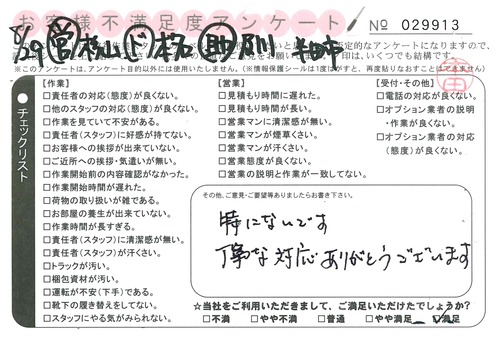 お客様不満足度アンケート
No 029913
8/29 営 桧山 ド 本江 助 及川 半田中
※このアンケートは、アンケート目的以外には使用いたしません。(※情報保護シールは1度はがすと、再度貼りなおすことはできません)
チェックリスト
【作業】
□責任者の対応(態度)が良くない。
□他のスタッフの対応(態度)が良くない。
□作業を見ていて不安がある。
□責任者(スタッフ)に好感が持てない。
□お客様への挨拶が出来ていない。
□ご近所への挨拶・気遣いが無い。
□作業開始前の内容確認がなかった。
□作業開始時間が遅れた。
□荷物の取り扱いが雑である。
□お部屋の養生が出来ていない。
□作業時間が長すぎる。
□責任者(スタッフ)に清潔感が無い。
□責任者(スタッフ)が汗くさい。
□トラックが汚い。
□梱包資材が汚い。
□運転が不安(下手)である。
□靴下の履き替えをしてない。
□スタッフにやる気がみられない。
【営業】
□見積もり時間に遅れた。
□見積もり時間が長い。
□営業マンに清潔感が無い。
□営業マンが煙草くさい。
□営業マンが汗くさい。
□営業態度が良くない。
□営業の説明と作業が一致してない。
【受付・その他】
□電話の対応が良くない。
□オプション業者の説明
・作業が良くない。
□オプション業者の対応
(態度)が良くない。
その他、ご意見・ご要望等ありましたらお書き下さい。
特にないです
丁寧な対応ありがとうございます
☆当社をご利用いただきまして、ご満足いただけたでしょうか?
□不満 □やや不満 □普通 □やや満足 □満足